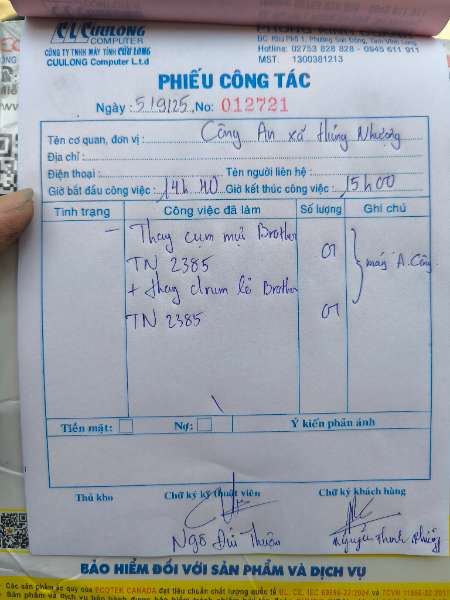 CUULONG
COMPUTER
CÔNG TY TNHH MÁY TÍNH CỬU LONG
CUULONG Computer L.t.d
ĐC: Khu Phố 1, Phường Sơn Đông, Tỉnh Vĩnh Long
Hotline: 02753 828 828 - 0945 611 911
MST: 1300381213
PHIẾU CÔNG TÁC
Ngày: 5/9/25 No: 012721
Tên cơ quan, đơn vị: Công An xã Hưng Nhượng
Địa chỉ:
Điện thoại: Tên người liên hệ:
Giờ bắt đầu công việc: 14h40 Giờ kết thúc công việc: 15h00
Tình trạng Công việc đã làm Số lượng Ghi chú
- Thay cụm mực Brother
TN 2385 01
máy A. Công
+ Thay drum lô Brother
TN 2385 01
Tiền mặt: Nợ: Ý kiến phản ánh
Thủ kho Chữ ký kỹ thuật viên Chữ ký khách hàng
Ngô Đức Thuận Nguyễn Thanh Phương
BẢO HIỂM ĐỐI VỚI SẢN PHẨM VÀ DỊCH VỤ
Các sản phẩm ắc quy của ECOTEK CANADA đạt tiêu chuẩn chất lượng quốc tế